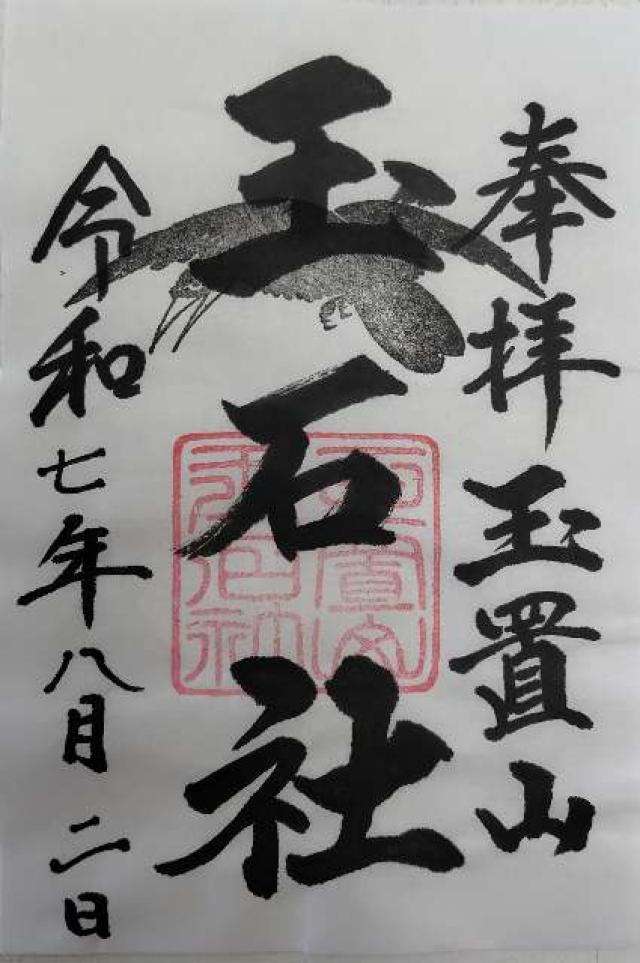 奉拝 玉置山
玉石社
令和七年八月二日